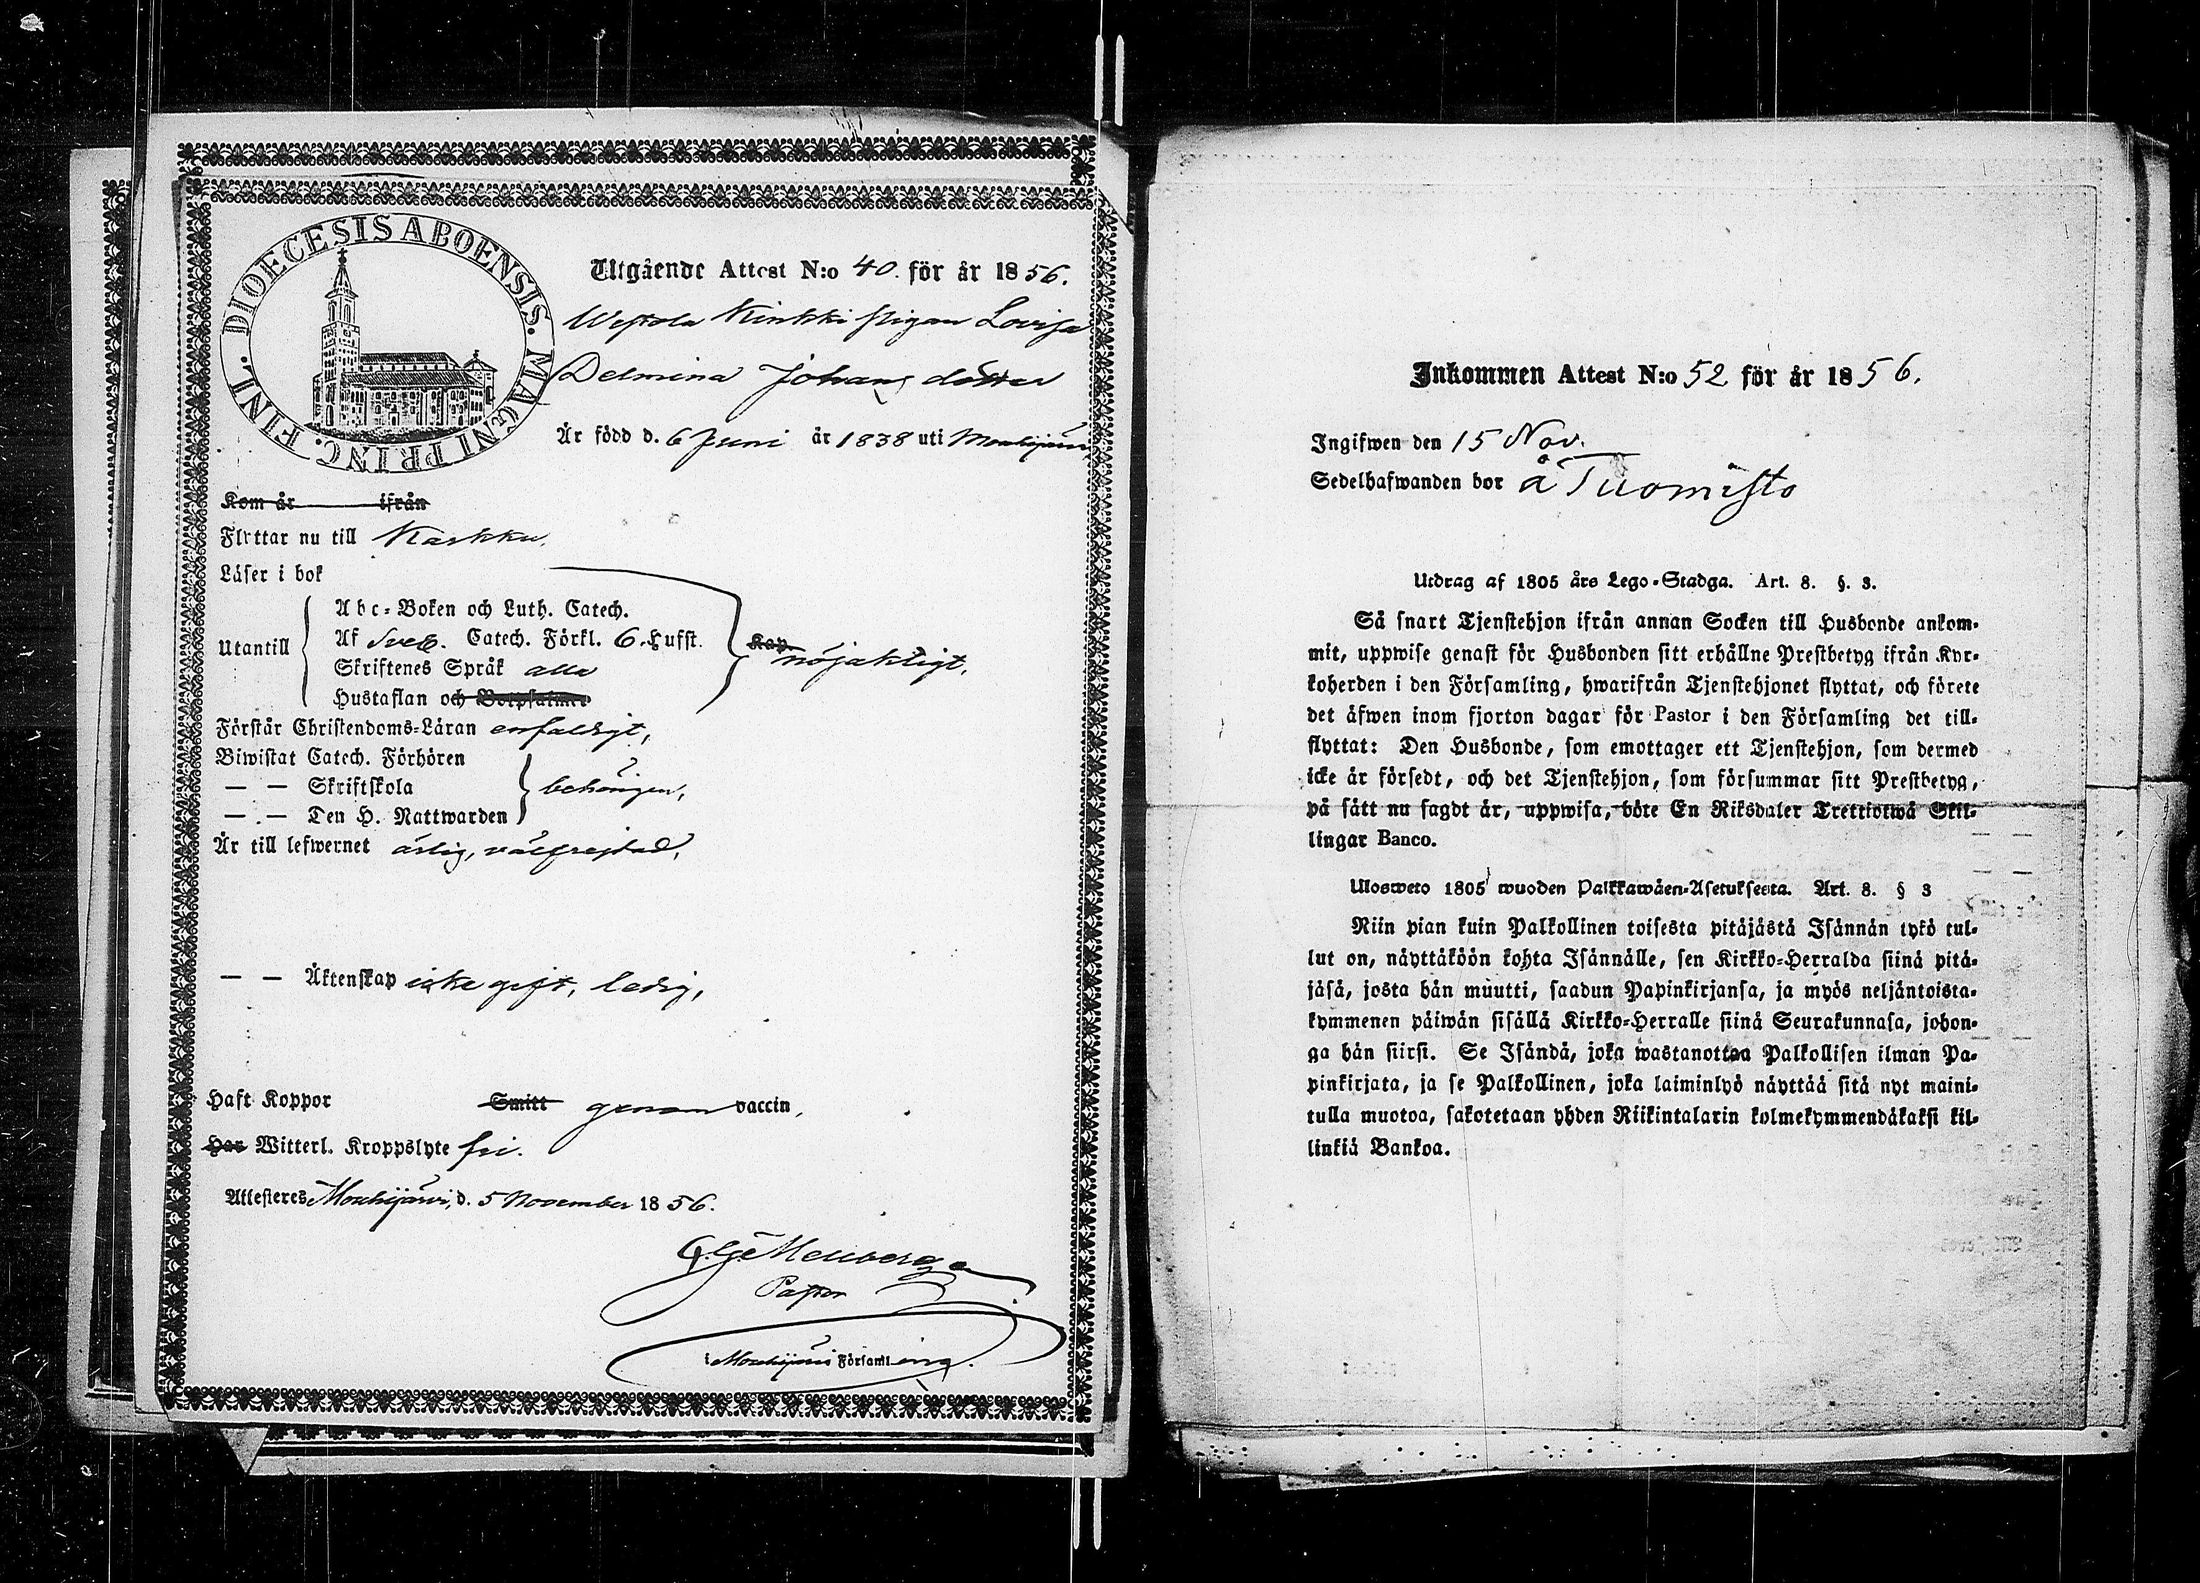 DIOECESIS ABOENSIS. MAGNI PRINC. FINL.
Utgående Attest N:o 40. för år 1856.
Westola Kinkki pigan Lovisa
Delmina Johans dotter
Är född d. 6 Juni år 1838 uti Mouhijärvi
Kom år ifrån
Flyttar nu till Karkku.
Läser i bok
Utantill
Abc-Boken och Luth. Catech.
Af Sveb. Catech. Förkl. 6. Hufst.
Skriftenes Språk alla
Hustaflan och Botpsalmer
Kap. nöjaktigt,
Förstår Christendoms-Läran enfaldigt,
Biwistat Catech. Förhören
— — Skriftskola
— — Den H. Nattwarden
behörigen,
Är till lefwernet ärlig, välfrejdad,
— — Äktenskap icke gift, ledig,
Haft Koppor Smitt genom vaccin,
Har Witterl. Kroppslyte fri.
Attesteres Mouhijärvi, d. 5 November 1856.
Pastor
i Mouhijärvi Församling.
Inkommen Attest N:o 52 för år 1856.
Ingifwen den 15 Nov.
Sedelhafwanden bor å Tuomisto
Utdrag af 1805 års Lego-Stadga. Art. 8. §. 3.
Så snart Tjenstehjon ifrån annan Socken till Husbonde ankom-
mit, uppwise genast för Husbonden sitt erhållne Prestbetyg ifrån Kyr-
koherden i den Församling, hwarifrån Tjenstehjonet flyttat, och förete
det äfwen inom fjorton dagar för Pastor i den Församling det till-
flyttat: Den Husbonde, som emottager ett Tjenstehjon, som dermed
icke är försedt, och det Tjenstehjon, som försummar sitt Prestbetyg,
på sätt nu sagdt är, uppwisa, böte En Riksdaler Trettiotwå Skil-
lingar Banco.
Ulosweto 1805 wuoden Palkkawäen-Asetuksesta. Art. 8. § 3
Niin pian kuin Palkollinen toisesta pitäjästä Isännän tykö tul-
lut on, näyttäköön kohta Isännälle, sen Kirkko-Herralda siinä pitä-
jäsä, josta hän muutti, saadun Papinkirjansa, ja myös neljäntoista-
kymmenen päiwän sisällä Kirkko-Herralle siinä Seurakunnasa, johon-
ga hän siirsi. Se Isändä, joka wastanottaa Palkollisen ilman Pa-
pinkirjata, ja se Palkollinen, joka laiminlyö näyttää sitä nyt maini-
tulla muotoa, sakotetaan yhden Riikintalarin kolmekymmendäkaksi kil-
linkiä Bankoa.